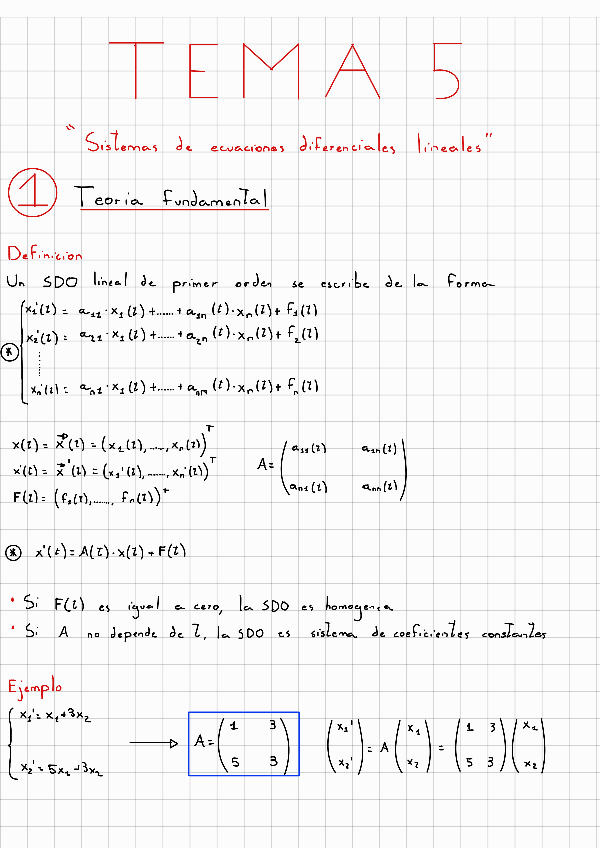 TEMA 5
"Sistemas de ecuaciones diferenciales lineales"
1 Teoria fundamental
Definicion
Un SDO lineal de primer orden se escribe de la forma
x₁'(t) = a₁₁·x₁(t)+......+a₁ₙ(t)·xₙ(t)+f₁(t)
x₂'(t) = a₂₁·x₁(t)+......+a₂ₙ(t)·xₙ(t)+f₂(t)
* ........
xₙ'(t) = aₙ₁·x₁(t)+......+aₙₙ(t)·xₙ(t)+fₙ(t)
x(t) = x⃗(t) = (x₁(t),....,xₙ(t))ᵀ
x'(t) = x⃗'(t) = (x₁'(t),......,xₙ'(t))ᵀ
F(t) = (f₁(t),......, fₙ(t))ᵀ
A = ( a₁₁(t) a₁ₙ(t)
aₙ₁(t) aₙₙ(t) )
* x'(t) = A(t)·x(t)+F(t)
• Si F(t) es igual a cero, la SDO es homogenea
• Si A no depende de t, la SDO es sistema de coeficientes constantes
Ejemplo
x₁' = x₁+3x₂
x₂' = 5x₁+3x₂
→ A = ( 1 3
5 3 )
( x₁' x₂' ) = A ( x₁ x₂ ) = ( 1 3 5 3 ) ( x₁ x₂ )